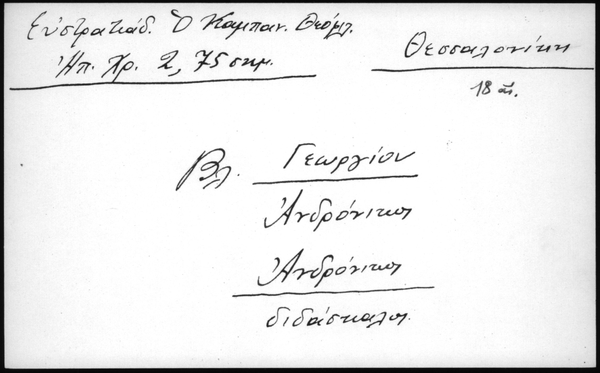 Εὐστρατιάδ. Ὁ Καμπαν. Θεόφιλ.
Ἀπ. Χρ. 2, 75 σημ.
Θεσσαλονίκη
18 αἰ.
Βλ. Γεωργίου
Ἀνδρόνικος
Ἀνδρόνικος
διδάσκαλος.